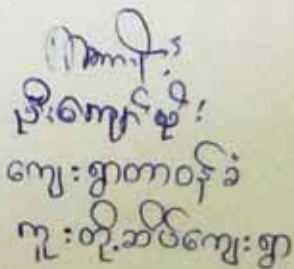 ဦးကျော်စိုး
ကျေးရွာတာဝန်ခံ
ကူးတို့ဆိပ်ကျေးရွာ